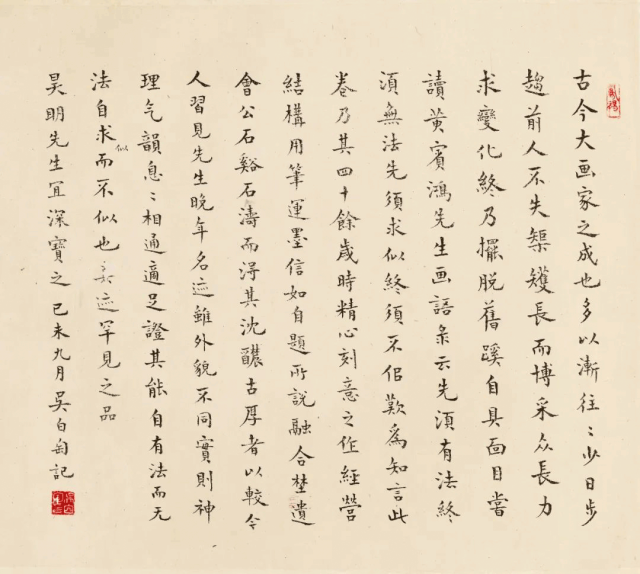 古今大画家之成也多以漸往〻少日步
趨前人不失榘矱長而博采众長力
求變化終乃擺脫舊蹊自具面目嘗
讀黄賓鴻先生画語彔云先湏有法終
湏無法先須求似終须不佀歎為知言此
卷乃其四十餘歲時精心刻意之作經營
結構用筆運墨信如自題所說融合埜遺
會公石谿石濤而淂其沈醲古厚者以較今
人習見先生晚年名迹雖外貌不同實則神
理气韻息〻相通適足證其能自有法而无
法自求似而不似也迹罕見之品
昊明先生宜深寶之己未九月吴白匋記